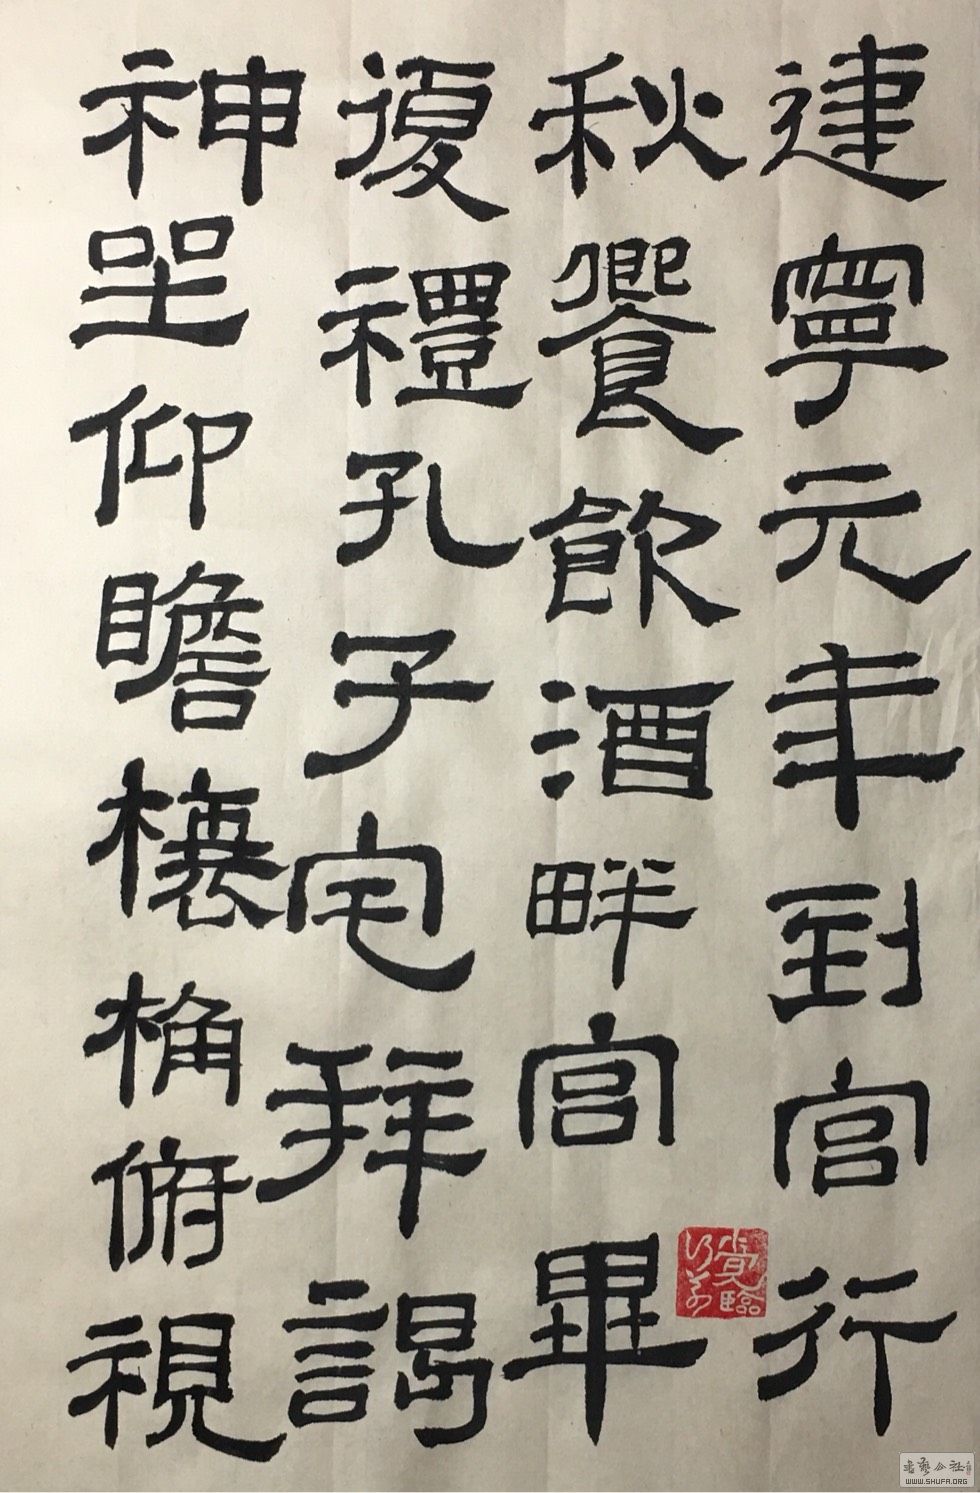 建寧元年到官行
秋饗飲酒畔宮畢
復禮孔子宅拜謁
神坐仰瞻榱桷俯視
书艺公社
WWW.SHUFA.ORG